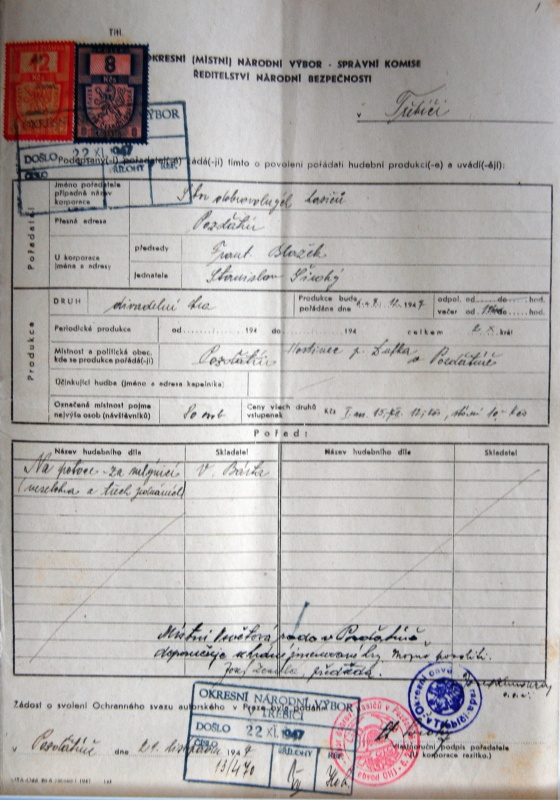 OKRESNÍ (MÍSTNÍ) NÁRODNÍ VÝBOR - SPRÁVNÍ KOMISE
ŘEDITELSTVÍ NÁRODNÍ BEZPEČNOSTI
12 Kčs
8 Kčs
v Třebíči
VÝBOR
DOŠLO 22 XI. 1947
ČÍSLO PŘÍLOHY
Podepsaný(-í) pořadatel(é) žádá(-jí) tímto o povolení pořádati hudební produkci(-e) a uvádí(-ějí):
Pořadatel
Jméno pořadatele případně název korporace Sbor dobrovolných hasičů
Přesná adresa Pozďatín
U korporace jména a adresy
předsedy Frant Blažek
jednatele Stanislav Široký
Produkce
DRUH divadelní hra
Produkce bude pořádána dne 12. 1947
odpol. od do hod.
večer od do hod.
Periodické produkce od 194 do 194 celkem krát
Místnost a politická obec, kde se produkce pořádá(-jí) Pozďatín Hostinec p. Dufka v Pozďatíně
Účinkující hudba (jméno a adresa kapelníka)
Označená místnost pojme nejvýše osob (návštěvníků) 80 osob
Ceny všech druhů vstupenek Kčs I. m. 15, II. 12, stání 10 Kčs
Pořad:
Název hudebního díla Skladatel Název hudebního díla Skladatel
Na potoce za mlýnicí V. Bárta
(veselohra o třech jednáních)
Místní osvětová rada v Pozďatíně
doporučuje sehrání jmenované hry.
předseda.
Žádost o svolení Ochranného svazu autorského v Praze byla podána
OKRESNÍ NÁRODNÍ VÝBOR
V TŘEBÍČI
DOŠLO 22 XI. 1947
ČÍSLO PŘÍLOHY
13/470
v Pozďatíně dne 21. listopadu 1947
Vlastnoruční podpis pořadatele
(U korporace razítko.)